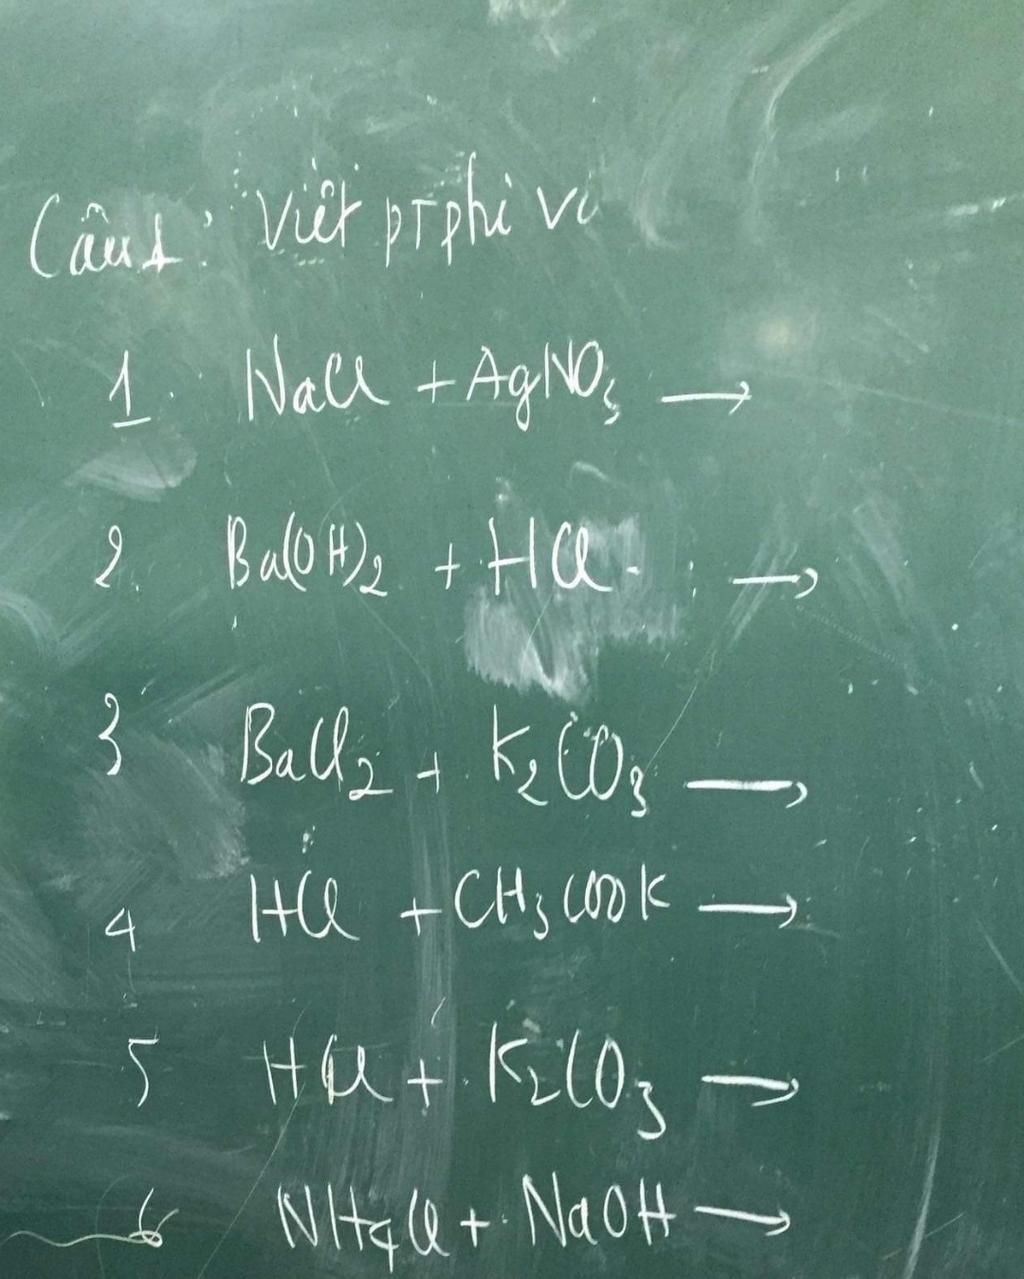 Câu 1: Viết pTphi và
1. NaCl + AgNO₃ →
2. Ba(OH)₂ + HCl →
3 BaCl₂ + K₂CO₃ →
4 HCl + CH₃COOK →
5 HCl + K₂CO₃ →
6 NH₄Cl + NaOH →